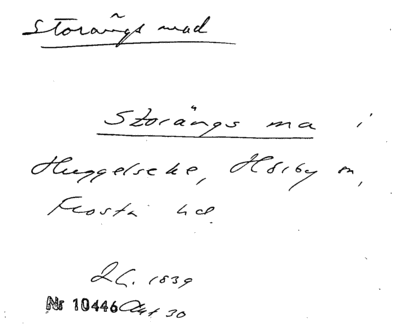 Storängs mad
Storängs ma i
Huggelseke, Hörby sn,
Frosta hd.
LG. 1839
Nr 10446 Akt 30